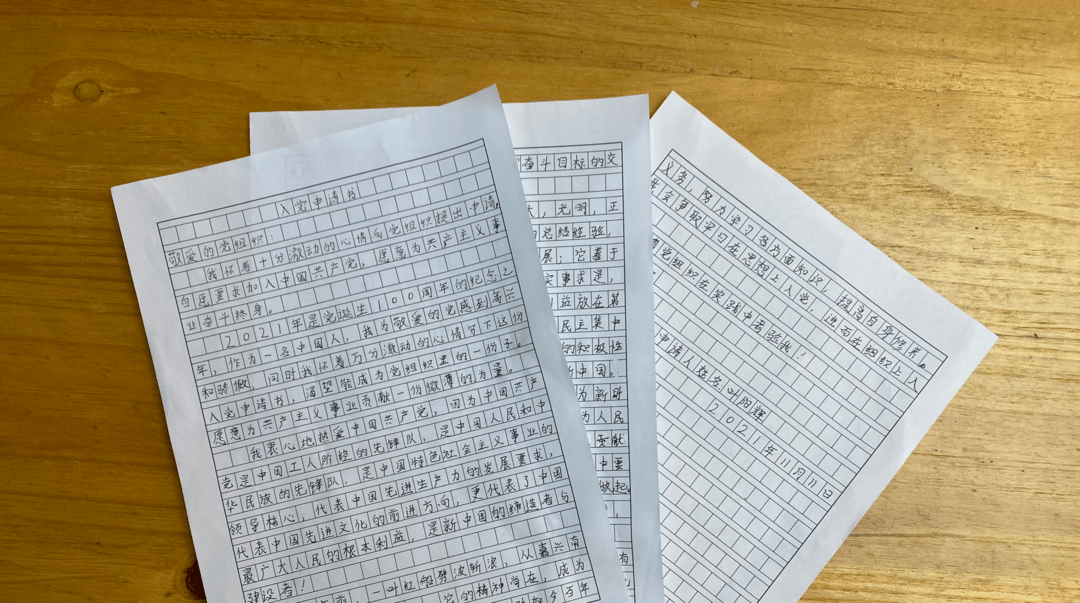 入党申请书
敬爱的党组织:
我怀着十分激动的心情向党组织提出申请,
自愿要求加入中国共产党,愿意为共产主义事
业奋斗终身。
2021年是党诞生100周年的纪念之
年,作为一名中国人,我为敬爱的党感到高兴
和骄傲,同时我怀着万分激动的心情写下这份
入党申请书,渴望能成为党组织里的一份子。
愿意为共产主义事业贡献一份微薄的力量。
我衷心地热爱中国共产党。因为中国共产
党是中国工人阶级的先锋队,是中国人民和中
华民族的先锋队,是中国特色社会主义事业的
领导核心,代表中国先进生产力的发展要求,
代表中国先进文化的前进方向,更代表了中国
最广大人民的根本利益,是新中国的缔造者与
建设者!
前,一叶红船劈波斩浪,从嘉兴南
它的精神尚在,成为
今百年
奋斗目标的交
大,光明,正
总结经验,
展;它善于
实事求是,
益放在第
民主集中
的积极性
新中国。
为新时
为人民
贡献
中要
做起。
,
有
义务,努力学习各方面知识,提高自身修养。
我会争取早日在思想上入党,进而在组织上入
党组织在实践中考验我!
申请人姓名叶阳辉
2021年11月11日